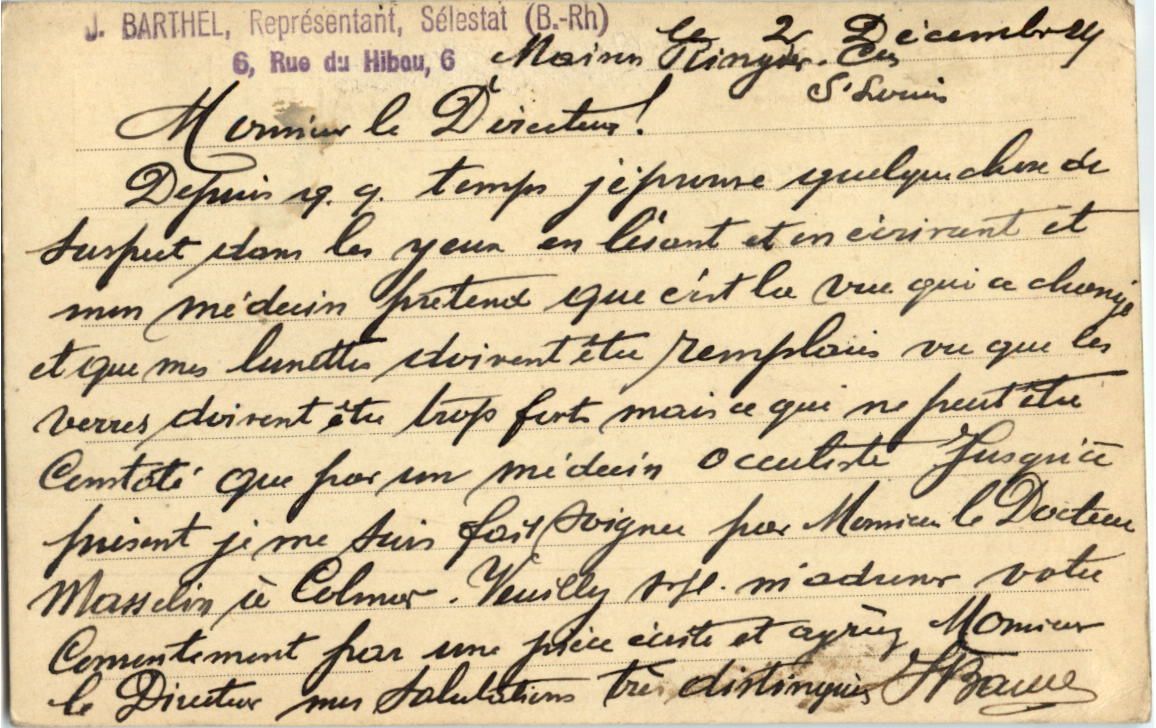 J. BARTHEL, Représentant, Sélestat (B.-Rh)
6, Rue du Hibou, 6
le 2 Décembre
Maison Ringier. Cie
St Louis
Monsieur le Directeur!
Depuis q. q. temps j'éprouve quelque chose de
suspect dans les yeux en lisant et en écrivant et
mon médecin prétend que c'est la vue qui a changé
et que mes lunettes doivent être remplacés vu que les
verres doivent être trop forts mais ce qui ne peut être
Constaté que par un médecin occuliste Jusqu'à
présent je me suis fait soigner par Monsieur le Docteur
Masselin à Colmar. Veuillez s.v.pl. m'adresser votre
Consentement par une pièce écrite et agréez Monsieur
le Directeur mes salutations très distinguées